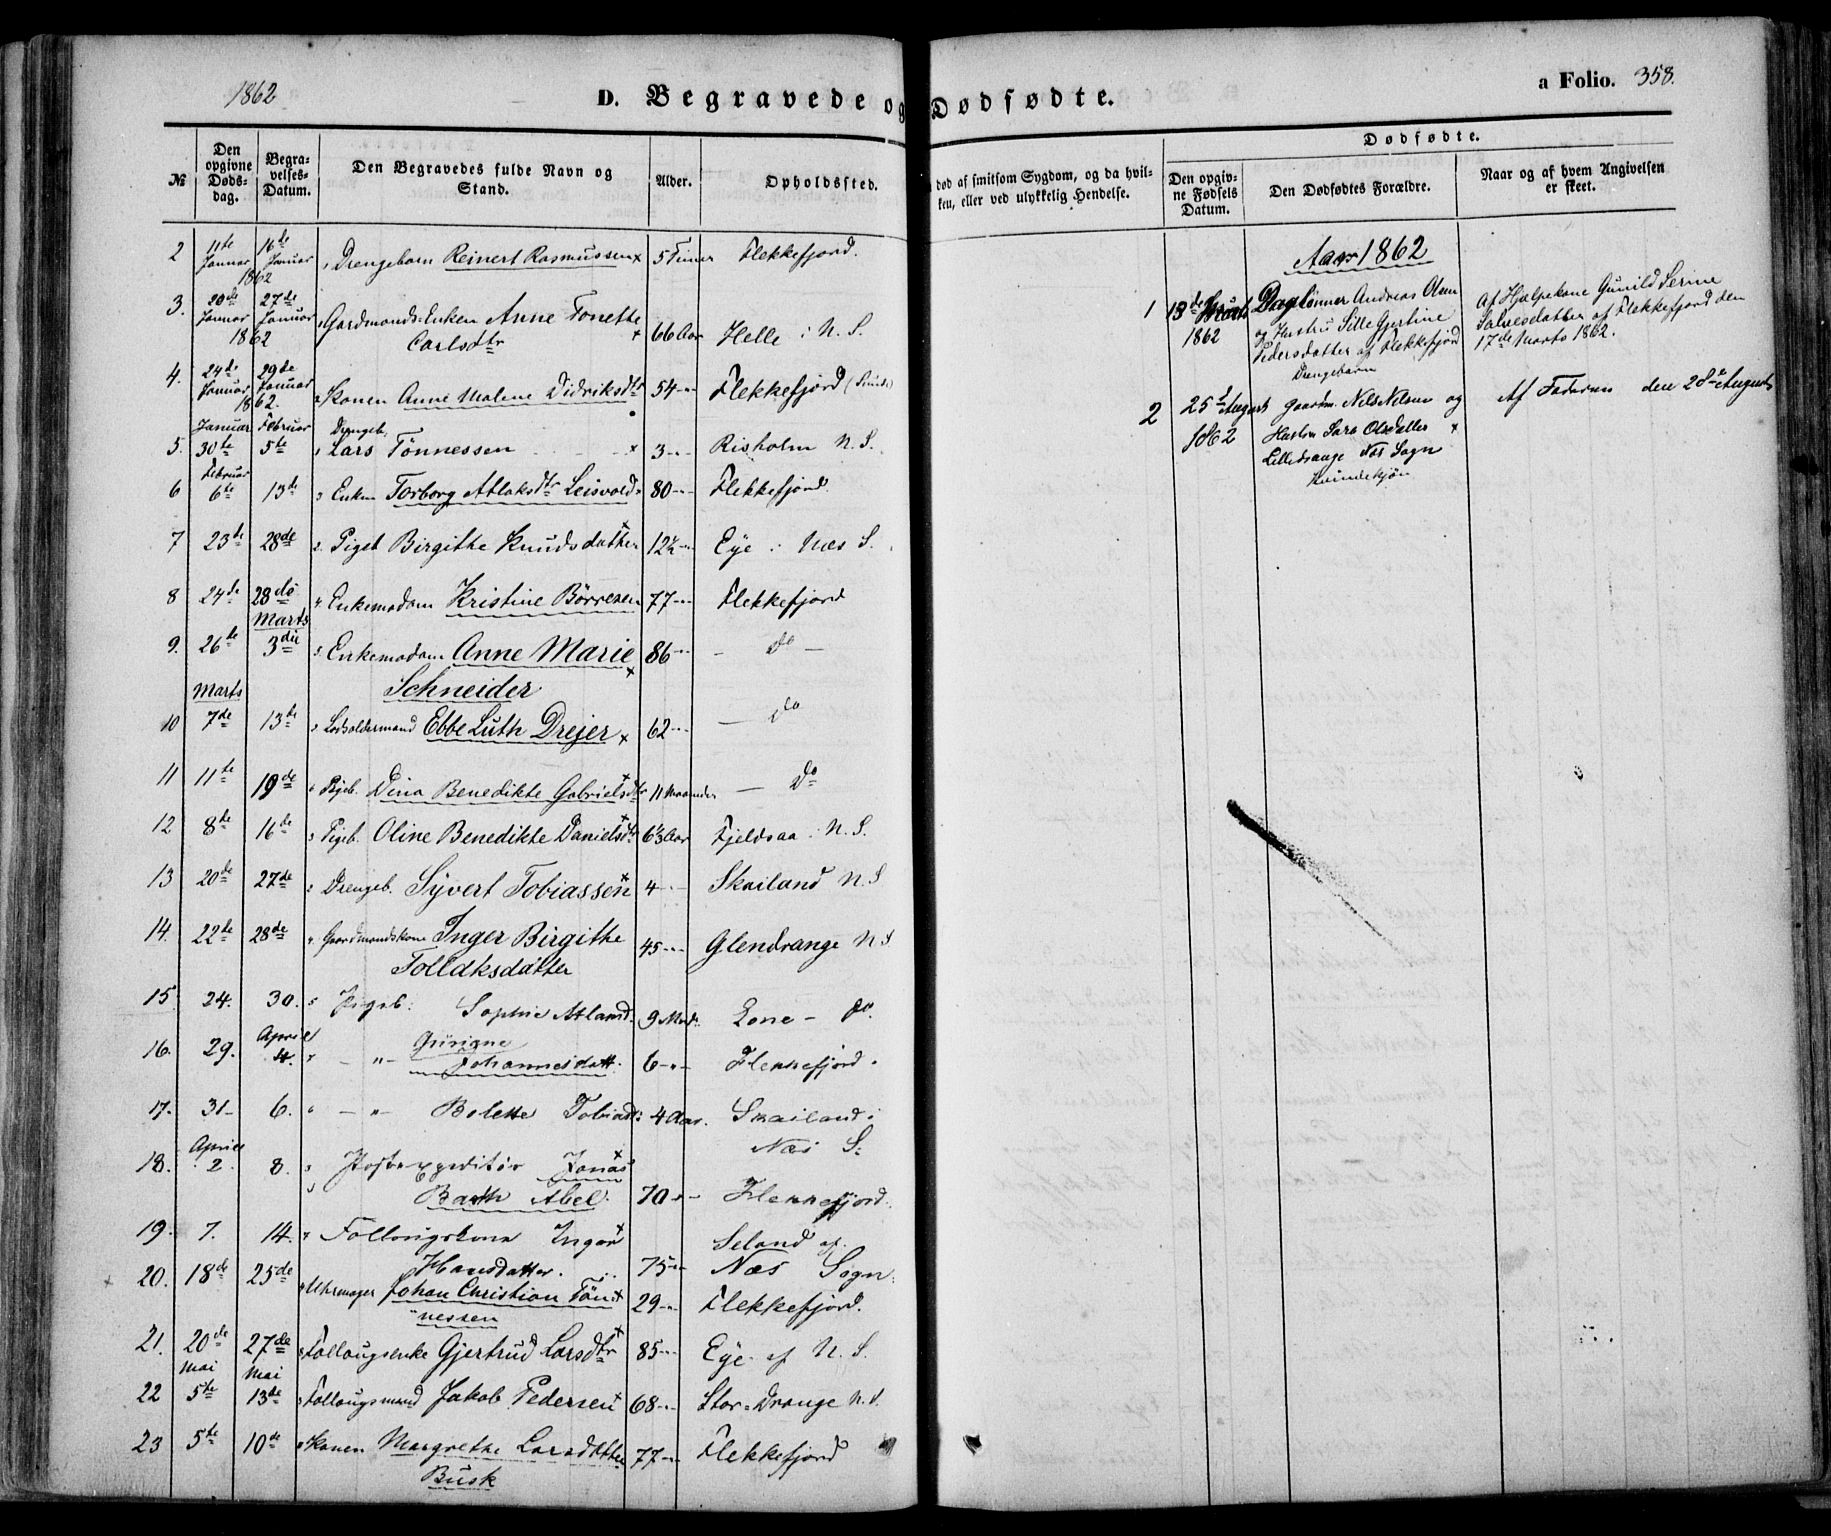 1862
D. Begravede og Dødfødte.
a Folio. 358.
№
Den opgivne Dødsdag.
Begravelses-Datum.
Den Begravedes fulde Navn og Stand.
Alder.
Opholdssted.
død af smitsom Sygdom, og da hvilken, eller ved ulykkelig Hendelse.
Dødfødte.
Den opgivne Fødsels Datum.
Den Dødfødtes Forældre.
Naar og af hvem Angivelsen er skeet.
2 11te Januar 1862 16de Januar Drengebarn Reinert Rasmussen 5 Timer Flekkefjord.
3. 20de Januar 1862 27de Januar Gardmands Enken Anne Tonette
Carlsdtr 66 Aar Helle i N. S.
4. 24de Januar 1862. 29de Januar Konen Anne Malene Didriksdtr 54 -"- Flekkefjord
Januar Februar Drengeb.
5. 30te 5te Lars Tönnessen 3 -"- Risholm N. S.
Februar
6 6te 13de Enken Torborg Atlaksdtr Leisvold 80 -"- Flekkefjord.
7 23de 28de Pigeb Birgithe Knudsdatter 12½ -"- Eye i Næs S.
8 24de 28de Enkemadam Kristine Börresen 77 -"- Flekkefjord
Marts
9. 26te 3die Enkemadam Anne Marie 86 -"- — do —
Schneider
Marts
10 7de 13de Lodsoldermand Ebbe Luth Drejer 62 -"- — do
11 11te 19de Pigeb. Dina Benedikte Gabrielsdtr 11 Maaneder — Do
12 8de 16de Pigeb. Oline Benedikte Danielsdtr 6½ Aar Fjeldsaa i N. S.
13 20de 27de Drengeb. Syvert Tobiassen 4 -"- Skailand N. S
14. 22de 28de Gaardmandskone Inger Birgithe 45 -"- Glendrange N. S
Tollaksdatter
15 24. 30. Pigeb: Sophie Atlaksd. 9 Mdr. Lone - do.
April
16. 29. 4. — " — Gurine
Johannesdatt. 6 -"- Flekkefjord.
17. 31 - 6. — " — Bolette Tobiasd: 4 Aar. Skailand i
Næs S:
April
18. 2. 8. Postexpeditör Jonas
Barth Abel. 70 -"- Flekkefjord.
19. 7. 14. Follougskone Inger Seland af
Hansdatter. 75 -"- Næs Sogn.
20. 18de 25de Uhrmager Johan Christian Tön
nessen 29 -"- Flekkefjord.
21. 20de 27de Follougsenke Gjertrud Larsdtr 85 -"- Eye af N. S.
Mai Mai
22 5te 13de Follougsmand Jakob Pedersen 68 -"- Stor-Drange N. S.
23 5te 10de Konen Margrethe Larsdatter 77 -"- Flekkefjord
Busk
Aar 1862
1 13de Marts 1862 Daglönner Andreas Olsen
og Hustru Sille Gjertine
Pedersdatter af Flekkefjord
Drengebarn
Af Hjælpekone Gunild Serine
Salvesdatter af Flekkefjord den
17de Marts 1862.
2 25de August 1862 Gaardm. Nils Nelsen og
Hustru Sara Olsdatter
Lilledrange Næs Sogn
Kvindekjön
Af Faderen den 28de August